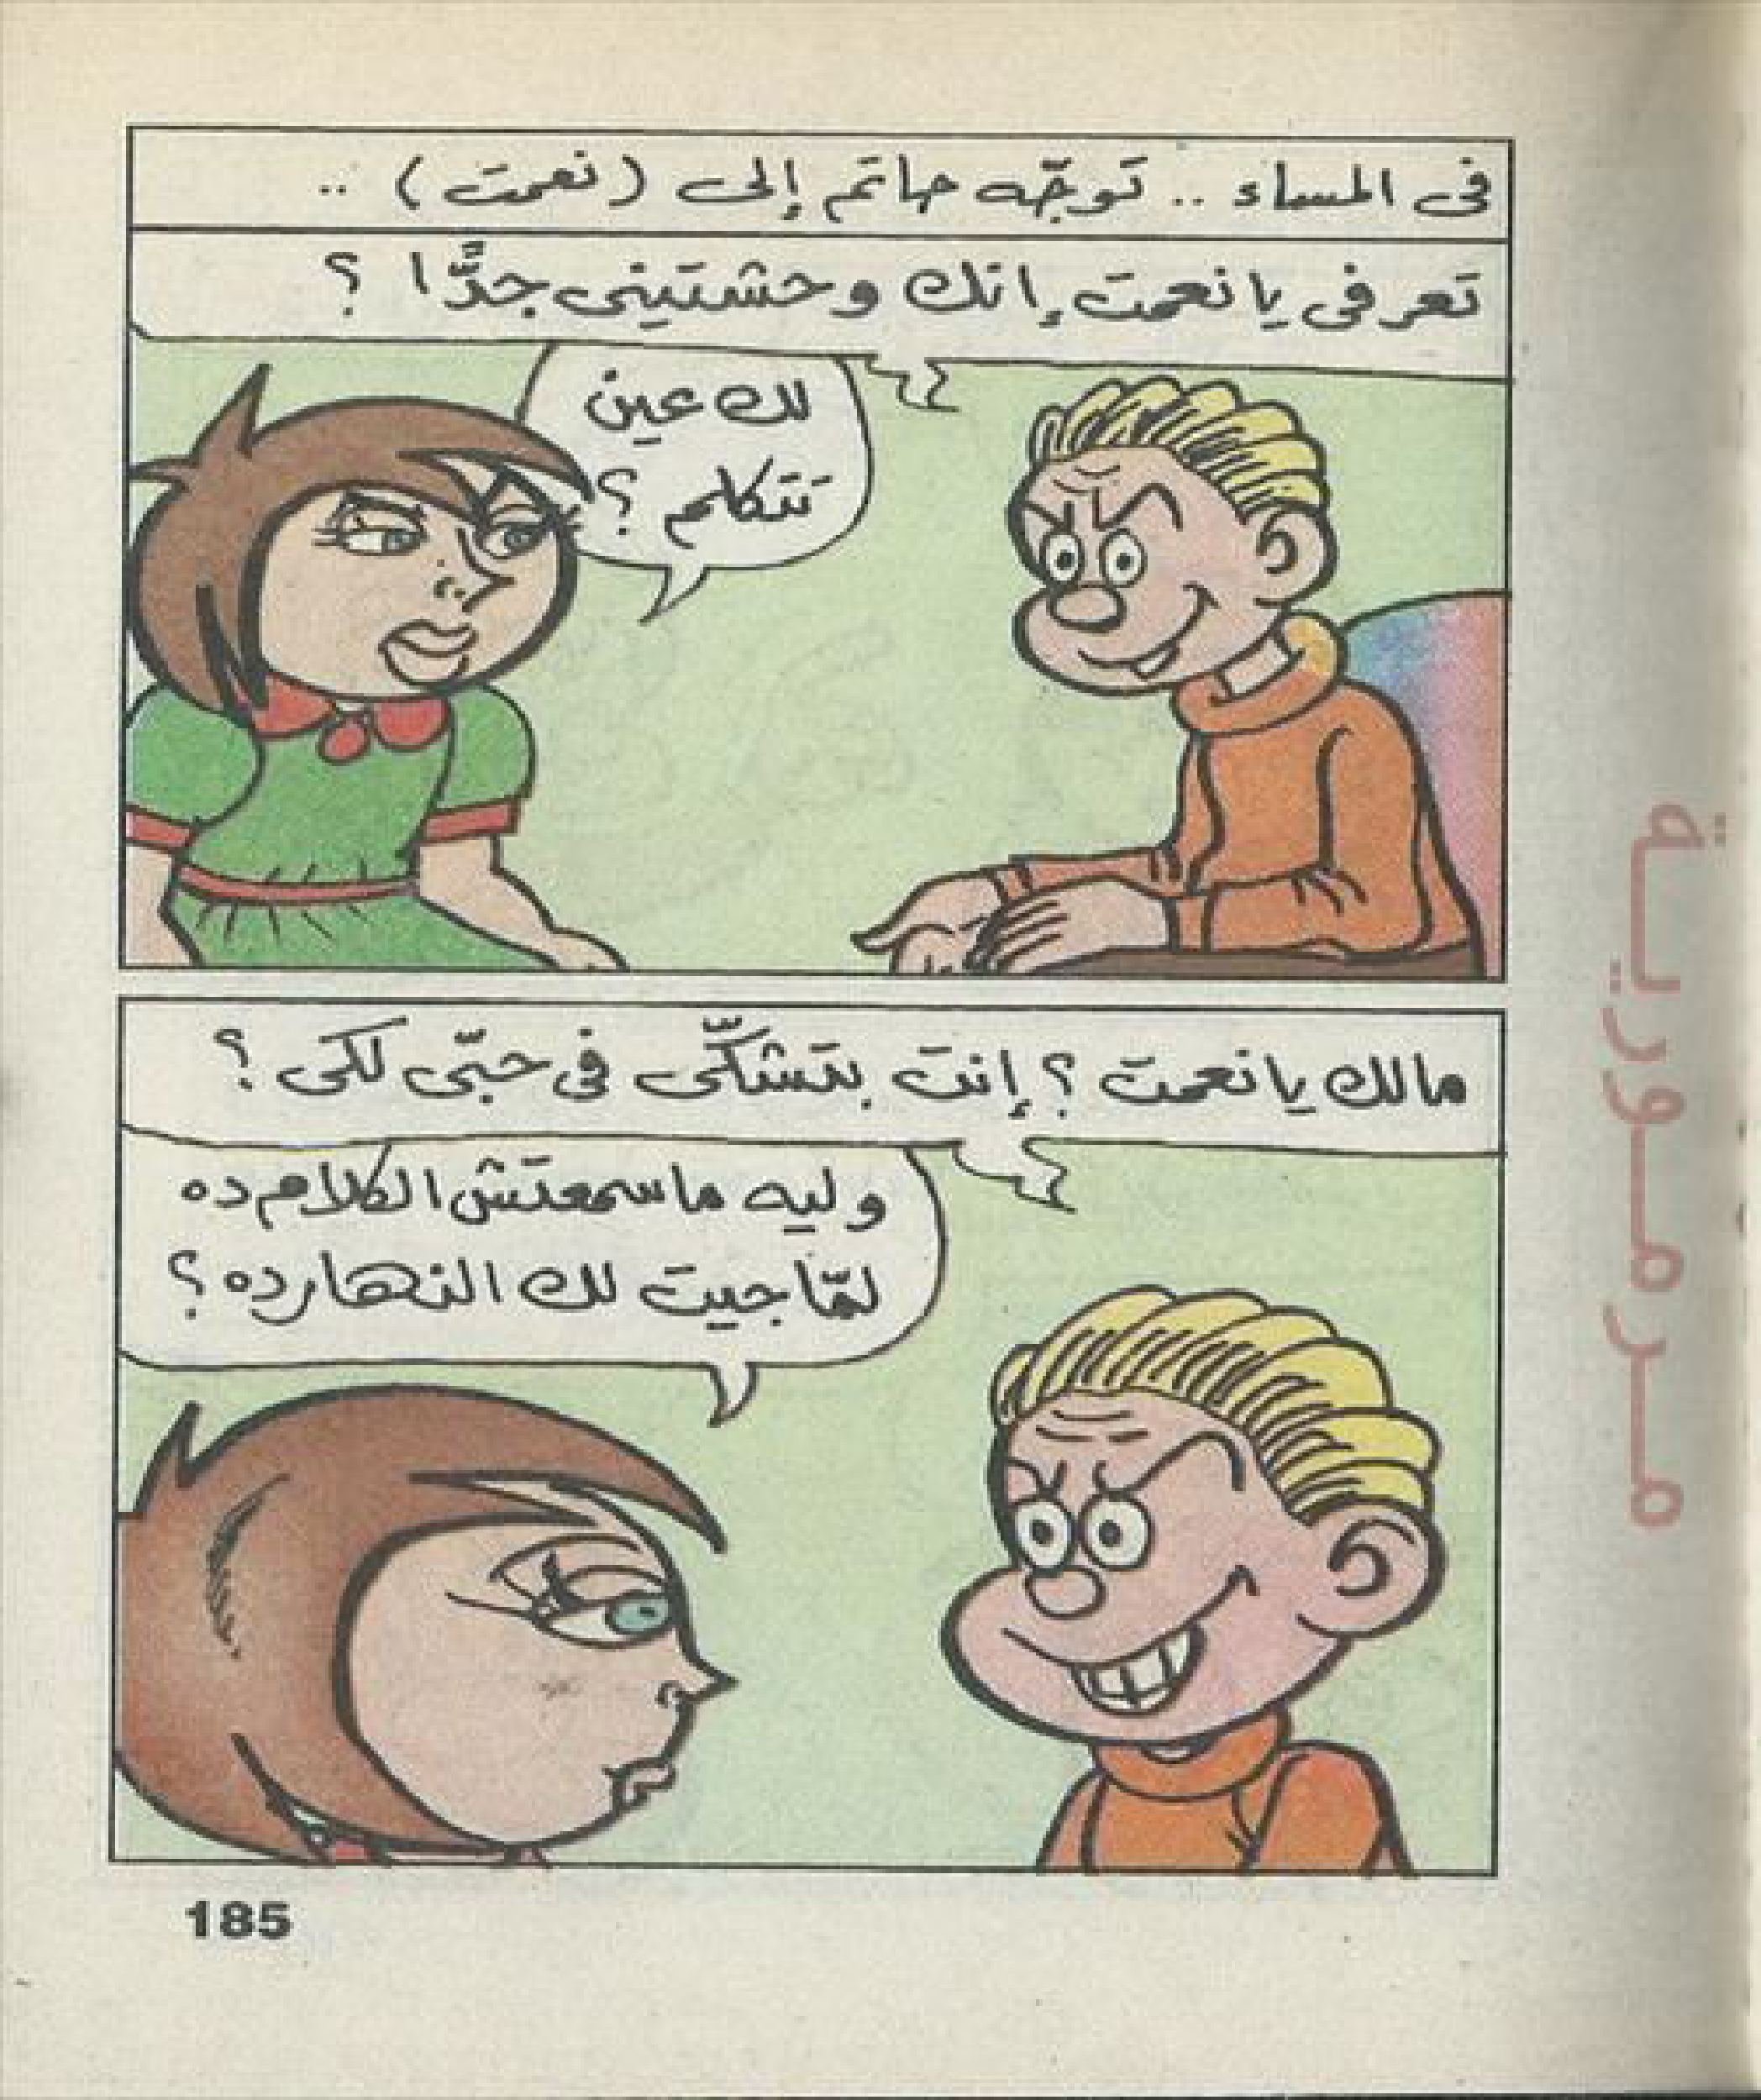 فى المساء .. توجّه حاتم إلى (نعمت) ..
تعرفى يا نعمت إنك وحشتينى جدًّا ؟
لك عين
تتكلم ؟
مالك يا نعمت ؟ إنت بتشكّى فى حبّى لكى ؟
وليه ما سمعتش الكلام ده
لمّا جيت لك النهارده ؟
185
مرمورية